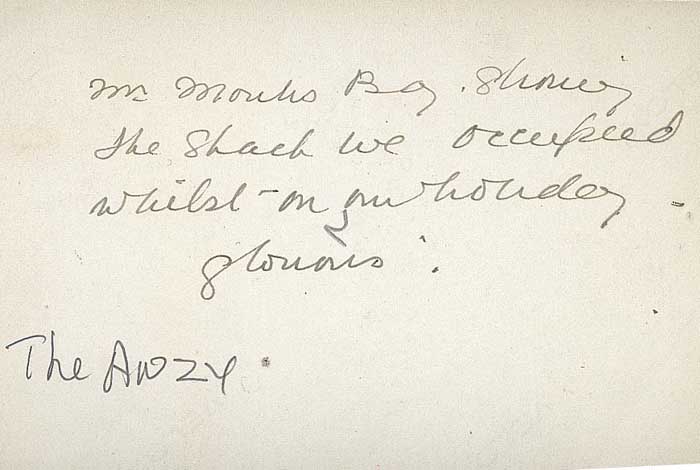 Mr Monks Bay. Showing
the Shack we occupied
whilst on our holiday
glorious.
The Anzy.